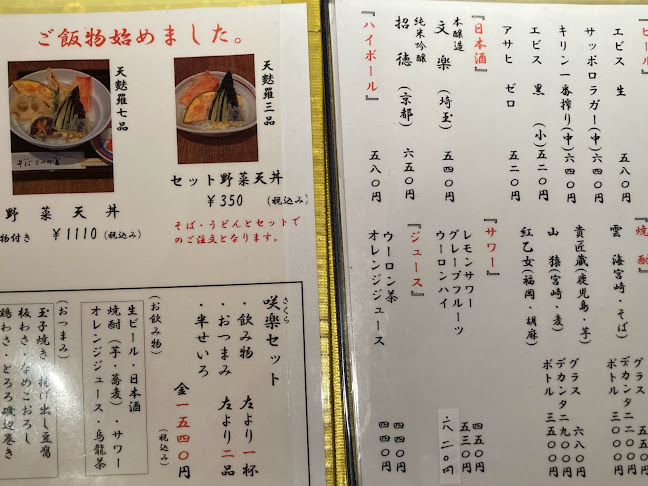 ご飯物始めました。
天麩羅七品
天麩羅三品
野菜天丼
物付き ￥1110 (税込み)
セット野菜天丼
￥350 (税込み)
そば・うどんとセットで
のご注文となります。
咲楽セット
さくら
・飲み物 左より一杯
・おつまみ 左より二品
・半せいろ
金一五四〇円
(税込み)
(お飲み物)
生ビール・日本酒
焼酎(芋・蕎麦)・サワー
オレンジジュース・烏龍茶
(おつまみ)
玉子焼き・揚げ出し豆腐
板わさ・なめこおろし
鶏わさ・とろろ磯辺巻き
『ビール』
エビス 生 五八〇円
サッポロラガー(中) 六四〇円
キリン一番搾り(中) 六四〇円
エビス 黒 (小) 五二〇円
アサヒ ゼロ 五二〇円
『日本酒』
本醸造
文楽 (埼玉) 五四〇円
純米吟醸
招德 (京都) 六五〇円
『ハイボール』 五八〇円
『焼酎』
雲海(宮崎・そば) グラス
デカンタ二二〇〇円
ボトル 三〇〇〇円
貴匠蔵(鹿児島・芋)
山猿(宮崎・麦)
紅乙女(福岡・胡麻)
グラス 六八〇円
デカンタ二九〇〇円
ボトル 三五〇〇円
『サワー』
レモンサワー 四五〇円
グレープフルーツ 五三〇円
ウーロンハイ
六二〇円
『ジュース』
ウーロン茶 四四〇円
オレンジジュース 四四〇円